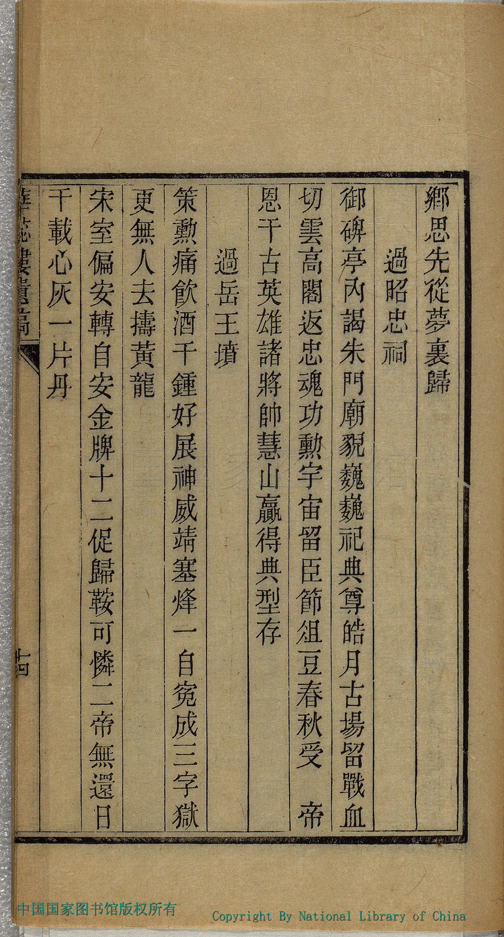 鄉思先從夢裏歸
過昭忠祠
御碑亭內謁朱門廟貌巍巍祀典尊皓月古場留戰血
切雲高閣返忠魂功勳宇宙留臣節俎豆春秋受 帝
恩千古英雄諸將帥慧山贏得典型存
過岳王墳
策勳痛飲酒千鍾好展神威靖塞烽一自寃成三字獄
更無人去擣黃龍
宋室偏安轉自安金牌十二促歸鞍可憐二帝無還日
千載心灰一片丹
樓遺稿
十四
中国国家图书馆版权所有
Copyright By National Library of China